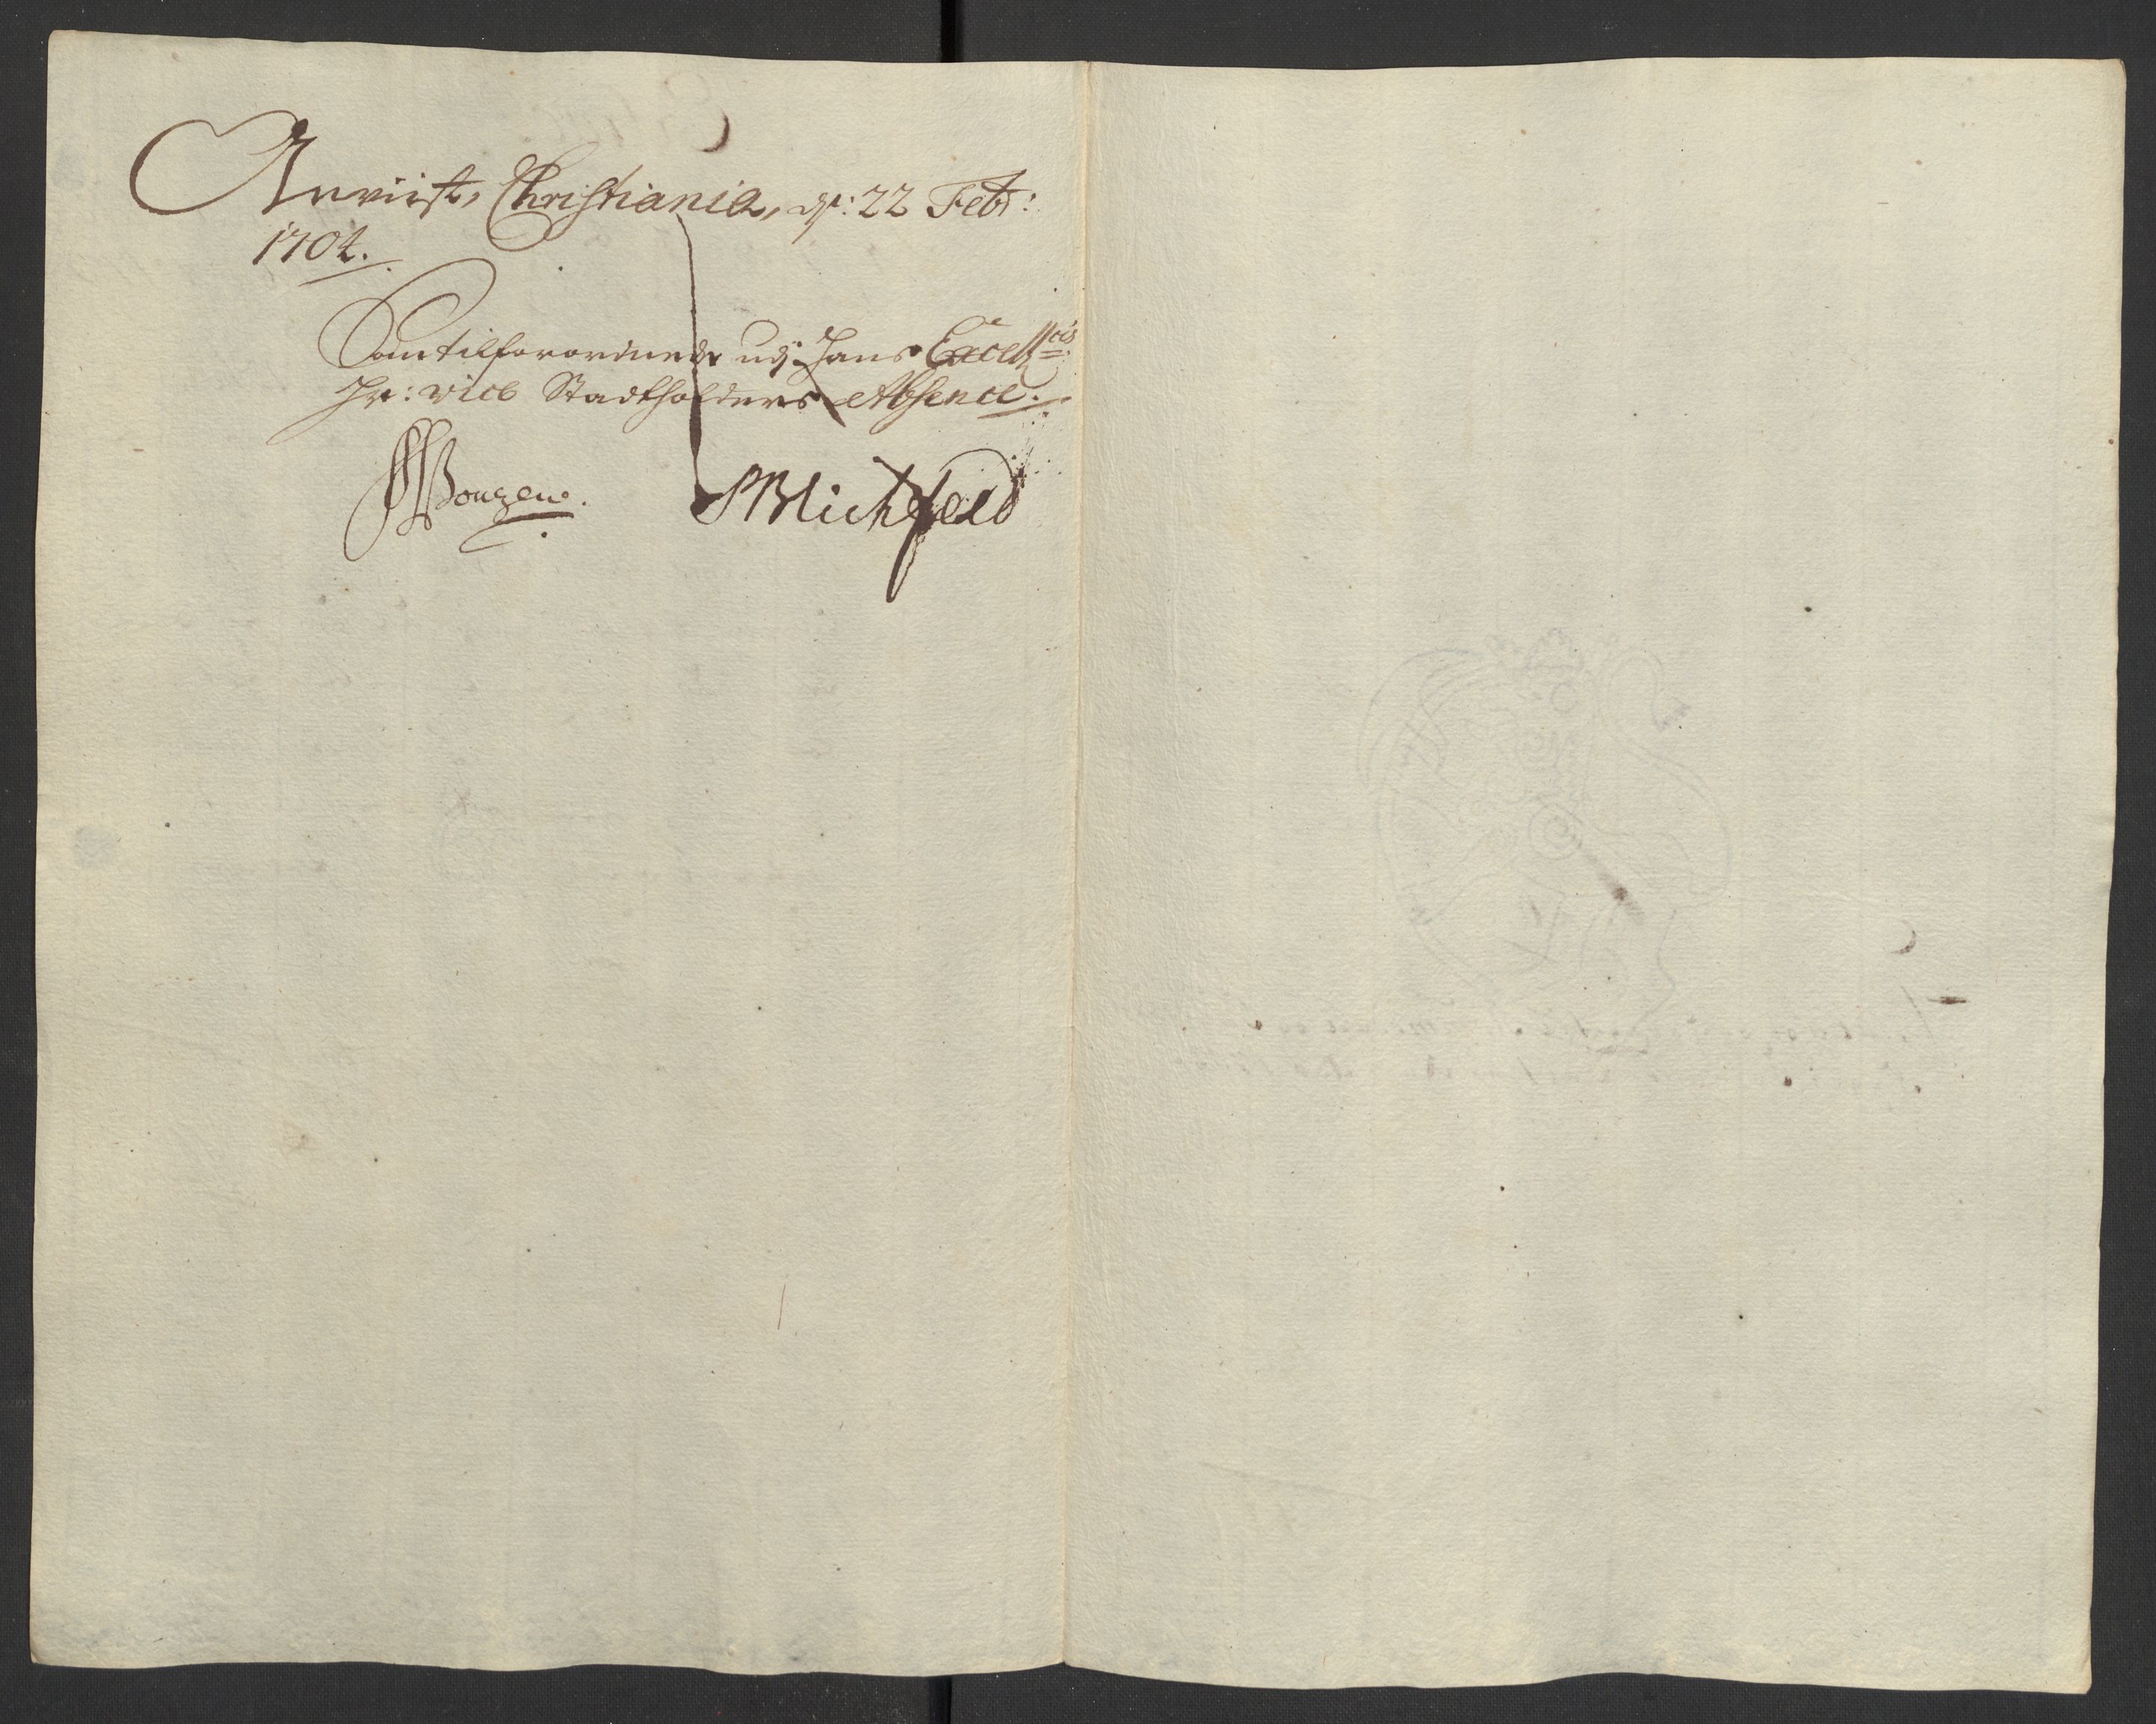 Anviist, Christiania, dr: 22 Febr:
1704.
Samtilforordnede udj Hans Excellcis
Hr: vice Stadtholders Absence.
SMichfeld